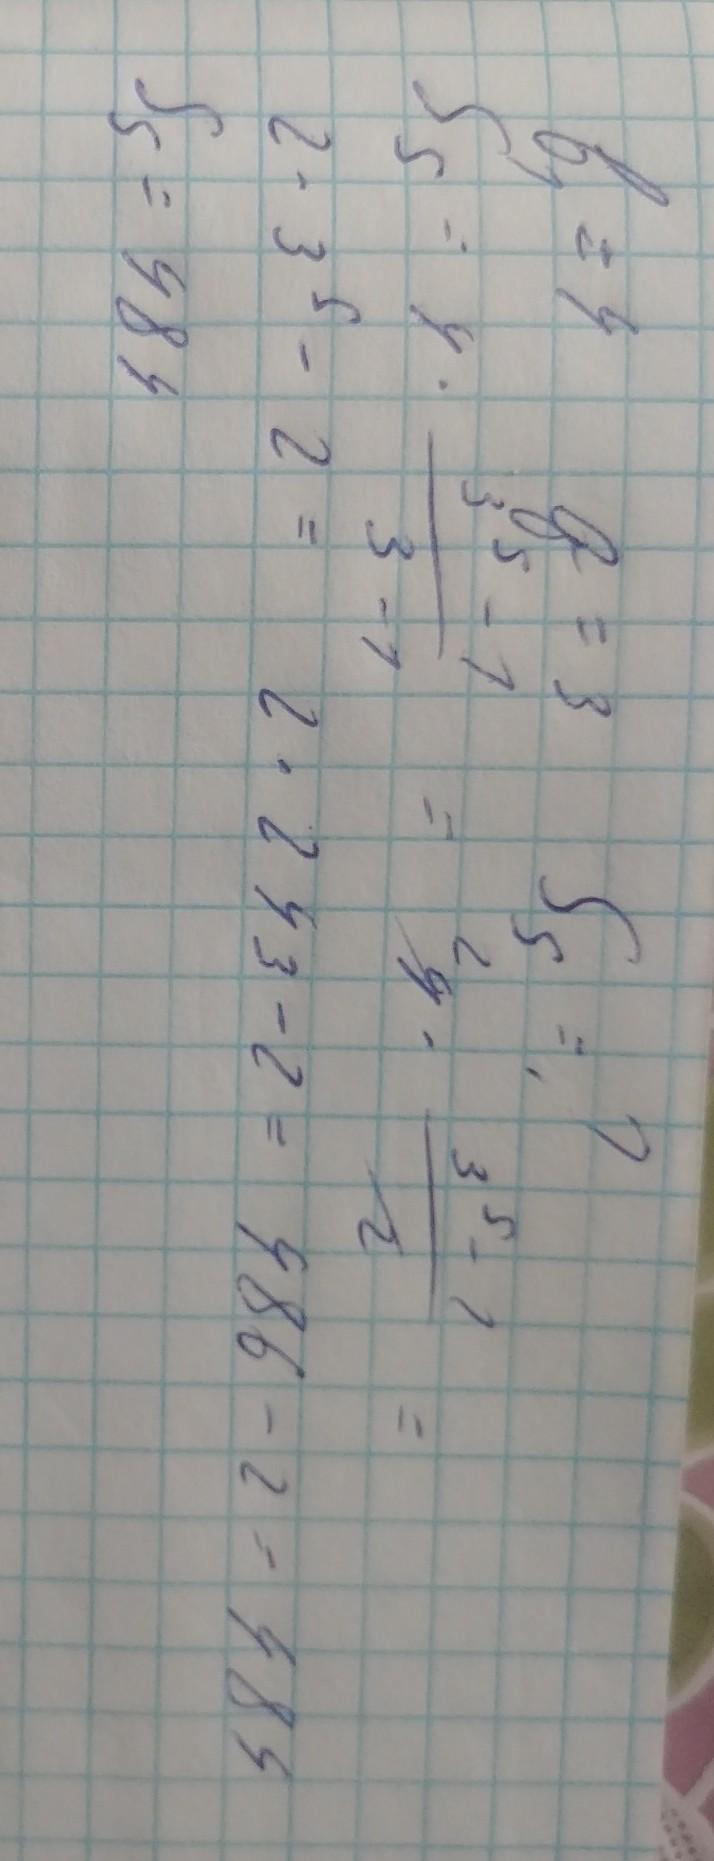 b₁ = 4 q = 3 S₅ = ?
S₅ = 4 · (3⁵ - 1)/(3 - 1) = 4 · (3⁵ - 1)/2 =
2 · 3⁵ - 2 = 2 · 243 - 2 = 486 - 2 = 484
S₅ = 484